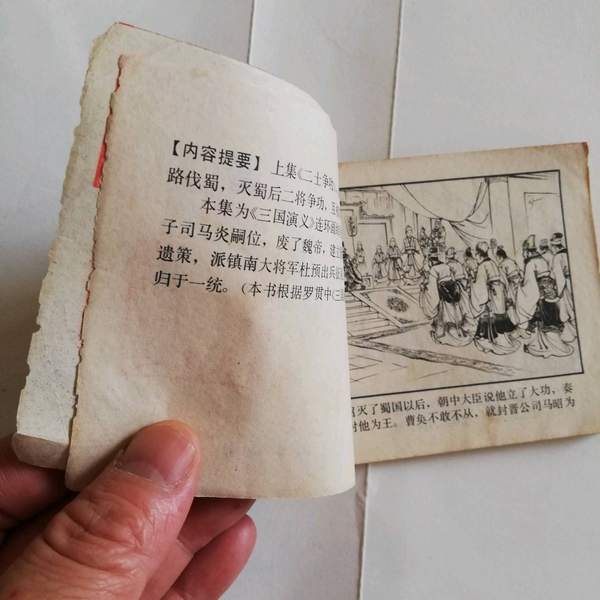 【内容提要】 上集《二士争功
路伐蜀，灭蜀后二将争功，互
本集为《三国演义》连环画
子司马炎嗣位，废了魏帝，建立
遗策，派镇南大将军杜预出兵
归于一统。(本书根据罗贯中《三
灭了蜀国以后，朝中大臣说他立了大功，奏
封他为王。曹奂不敢不从，就封晋公司马昭为